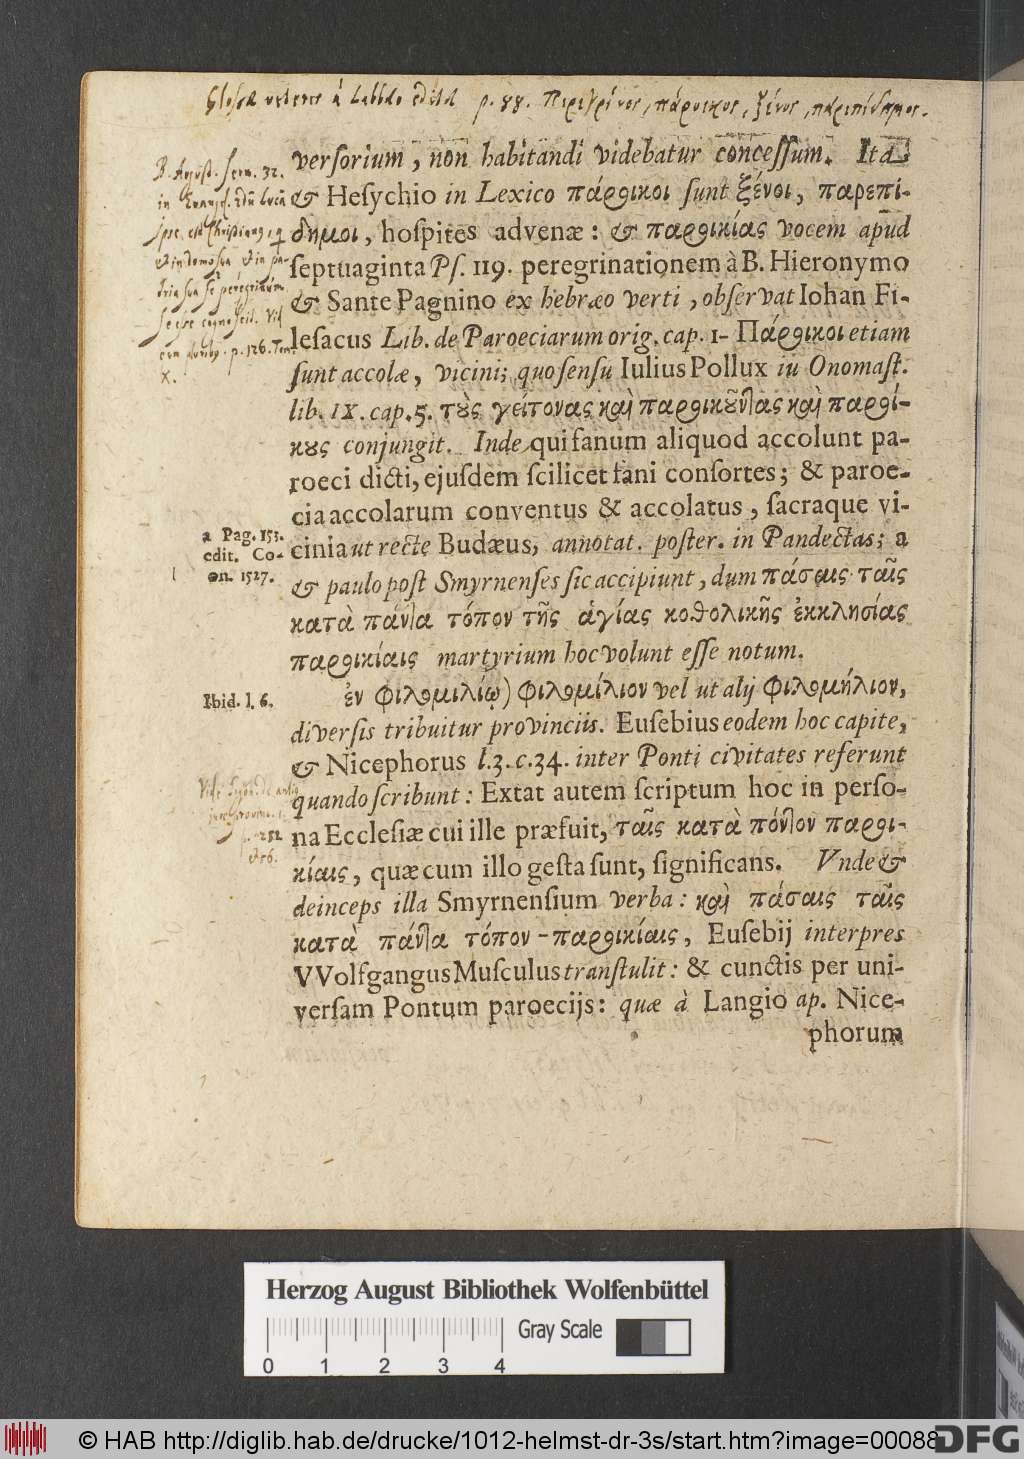 Glossæ veteres à Labbæo editæ p. 88. Περεγρίνος, πάροικος, ξένος, παρεπίδημος.
verſorium, non habitandi videbatur conceſſum. Ita
& Heſychio in Lexico πάροικοι ſunt ξένοι, παρεπί-
δημοι, hoſpites advenæ: & παροικίας vocem apud
ſeptuaginta Pſ. 119. peregrinationem à B. Hieronymo
& Sante Pagnino ex hebræo verti, obſervat Iohan Fi-
leſacus Lib. de Paroeciarum orig. cap. 1- Πάροικοι etiam
ſunt accolæ, vicini; quo ſenſu Iulius Pollux iu Onomaſt.
lib. IX. cap. 5. τοὺς γείτονας καὶ παροικοῦντας καὶ παροί-
κους conjungit. Inde qui fanum aliquod accolunt pa-
roeci dicti, ejuſdem ſcilicet fani conſortes; & paroe-
cia accolarum conventus & accolatus, ſacraque vi-
cinia ut rectè Budæus, annotat. poſter. in Pandectas; a
& paulo poſt Smyrnenſes ſic accipiunt, dum πάσαις ταῖς
κατὰ πάντα τόπον τῆς ἁγίας καθολικῆς ἐκκλησίας
παροικίαις martyrium hoc volunt eſſe notum.
ἐν φιλομιλίῳ) φιλομίλιον vel ut alij φιλομήλιον,
diverſis tribuitur provinciis. Euſebius eodem hoc capite,
& Nicephorus l. 3. c. 34. inter Ponti civitates referunt
quando ſcribunt: Extat autem ſcriptum hoc in perſo-
na Eccleſiæ cui ille præfuit, ταῖς κατὰ πόντον παροι-
κίαις, quæ cum illo geſta ſunt, ſignificans. Vnde &
deinceps illa Smyrnenſium verba: καὶ πάσαις ταῖς
κατὰ πάντα τόπον - παροικίαις, Euſebij interpres
VVolfgangus Muſculus tranſtulit: & cunctis per uni-
verſam Pontum paroecijs: quæ à Langio ap. Nice-
phorum
B. Auguſt. ſerm. 32.
in Evangel. ſcdm Lucā
ipſe eſt Christianus, q
& in domo ſua & in pa-
tria ſua ſe peregrinum
eſſe cognoſcit.
p. 126. Tom.
X.
a Pag. 153.
edit. Co-
on. 1527.
Ibid. l. 6.
Herzog August Bibliothek Wolfenbüttel
Gray Scale
0 1 2 3 4
© HAB http://diglib.hab.de/drucke/1012-helmst-dr-3s/start.htm?image=00088
DFG